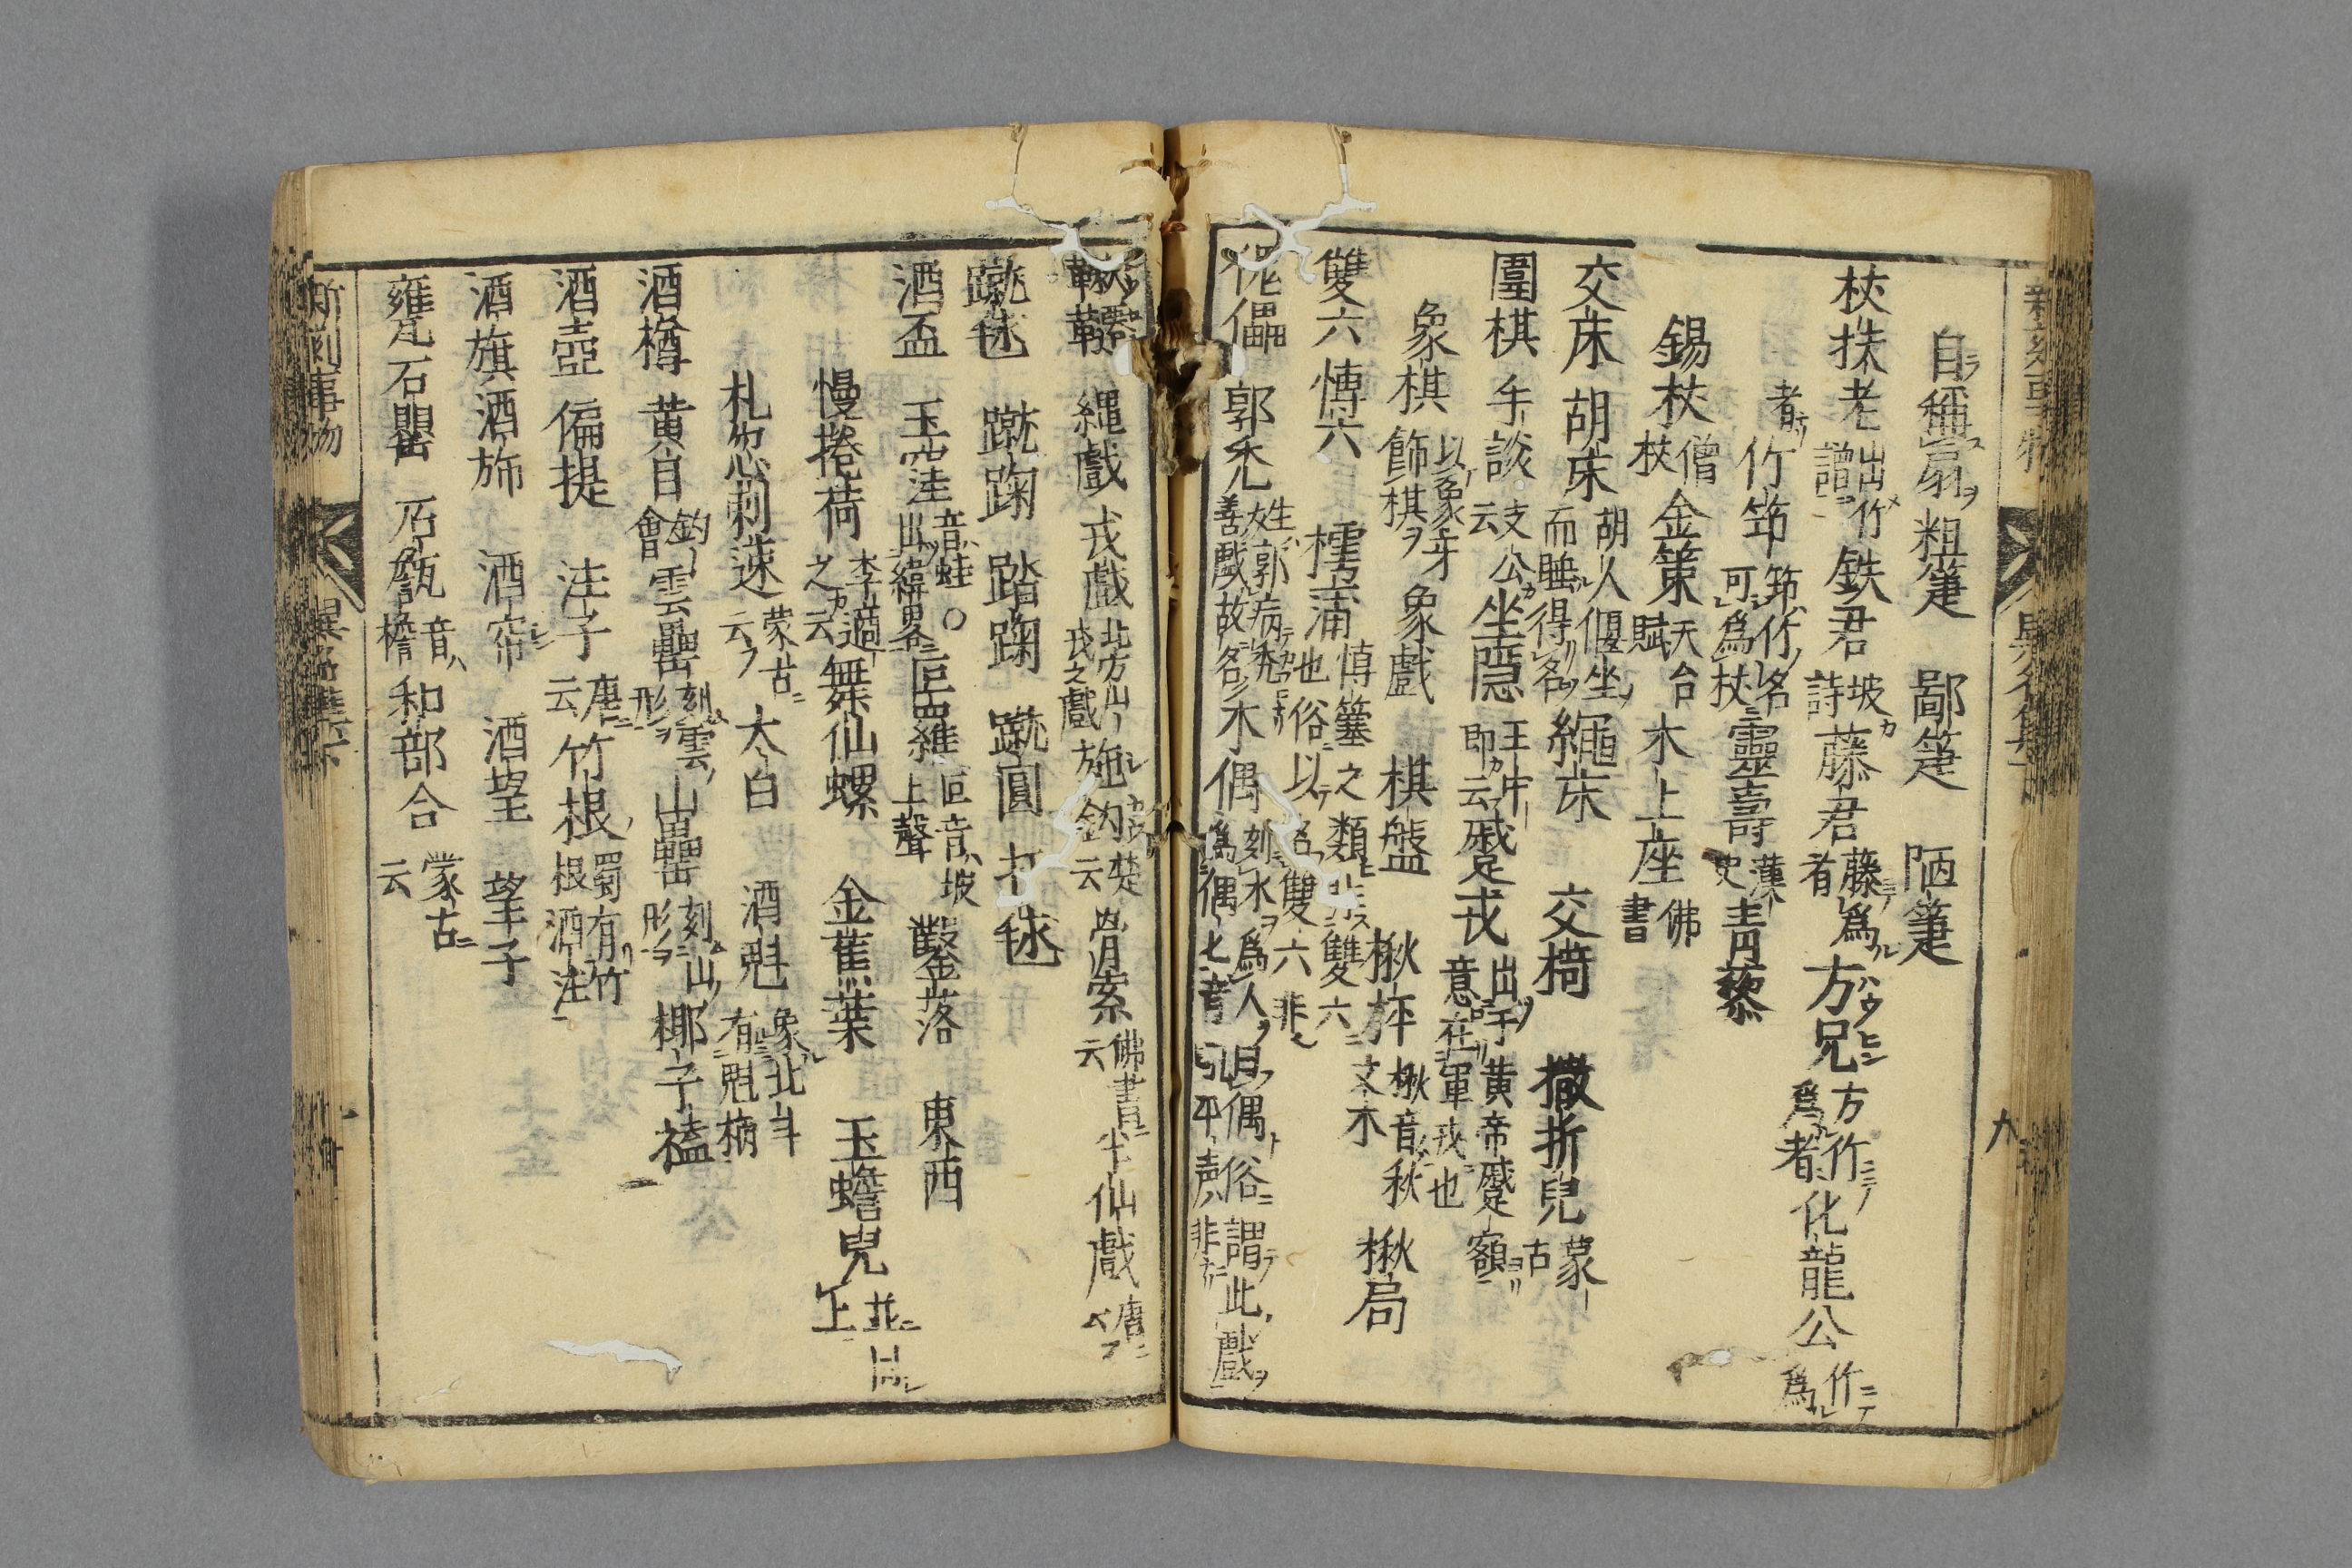 自稱扇ヲ 粗箑 鄙箑 陋箑
杖 扶老 出竹譜 鉄君 坡詩 藤君 藤為 方兄 方竹 為者 化龍公 竹 為
者 竹笻 笻竹名可為杖 靈壽 漢史 青藜
錫杖 僧杖 金策 天台賦 木上座 佛書
交床 胡床 胡人偃坐而睡得名 繩床 交椅 撒折兒 蒙古
圍棋 手談 支公云 坐隱 王中郎云 蹙戎 出于黄帝蹙額意在軍戎也
象棋 飾棋 以象牙 象戲 棋盤 楸枰 楸音秋文木 楸局
雙六 愽六 樗蒲 愽簺之類非雙六也俗以為雙六非
傀儡 郭禿 姓郭病禿善戯故名 木偶 刻木為人且偶俗謂此戲
鞦韆 繩戲 戎戲 北方山戎之戲 施鈎 楚云 骨索 佛書云 半仙戲 唐
蹴毬 蹴踘 踏踘 蹴圓 打毬
酒盃 玉窪 音蛙出緯畧 〇叵羅 叵音坡上聲 鑿落 東西
慢捲荷 李適之云 舞仙螺 金蕉葉 玉蟾兒 並上
札忽剌速 蒙古云 太白 酒魁 象北斗有魁柄
酒樽 黄目 雲罍 刻雲形 山罍 刻山形 椰子榼
酒壺 偏提 注子 唐云 竹根 蜀有竹根酒注
酒旗 酒斾 酒帘 酒望 望子
甕 石罌 石甔 音檐 和部合 蒙古云